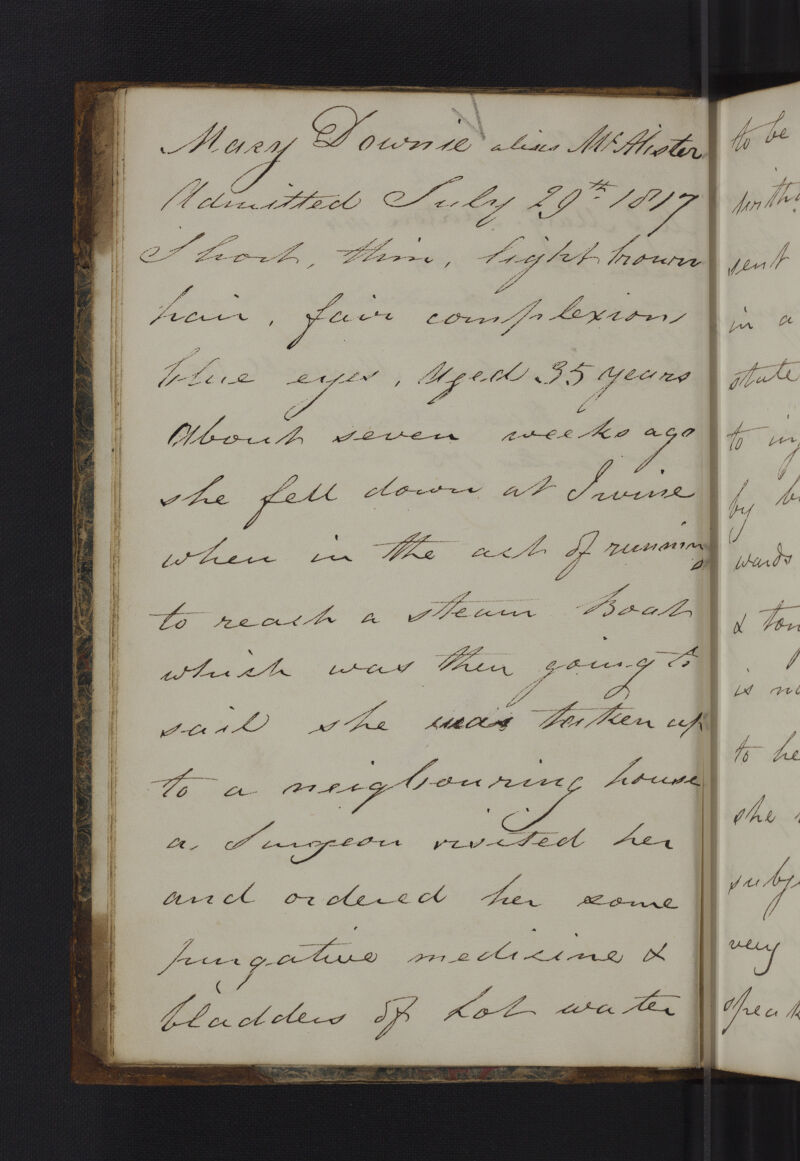 Mary Downie alias McAlister
Admitted July 29th. 1817
Short, thin, light brown
hair, fair complexion
blue eyes, Aged 35 years
About seven weeks ago
she fell down at Irvine
when in the act of running
to reach a steam Boat
which was then going to
sail she was taken up
to a neigbouring house
a Surgeon visited her
and ordered her some
purgative medicine &
bladders of hot water
to be
sent
in a
state
to
by
wards
&
is
to he
she
very
speak